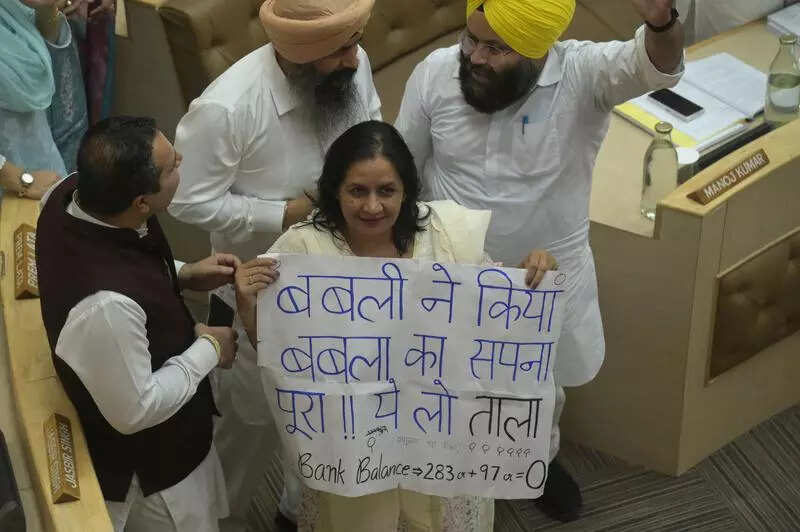 MANOJ KUMAR
PREM LATA
बबली ने कियां
बबला का सपना
पूरा !! ये लो ताला
Bank Balance ⇒ 283 + 97 = 0
JASBIR SINGH